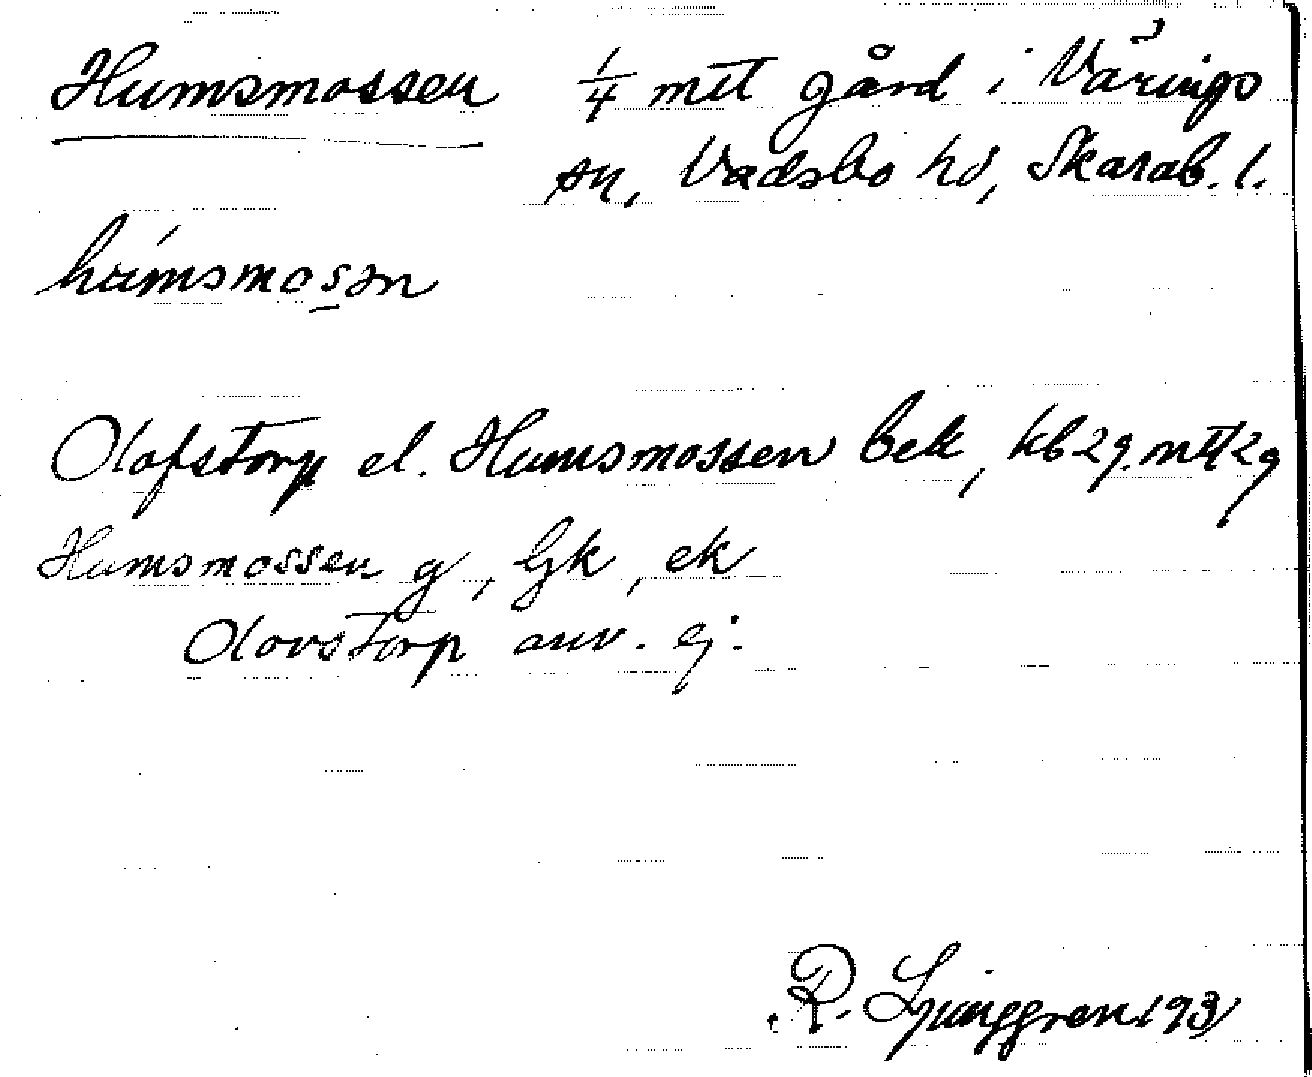 Humsmossen 1/4 mtl gård i Värings
sn, Vadsbo hd, Skarab. l.
Olofstorp el. Humsmossen bek, kb 29. mtl 29
Humsmossen g, Gk, ek
Olovstorp anv. ej.
R. Ljunggren 1931